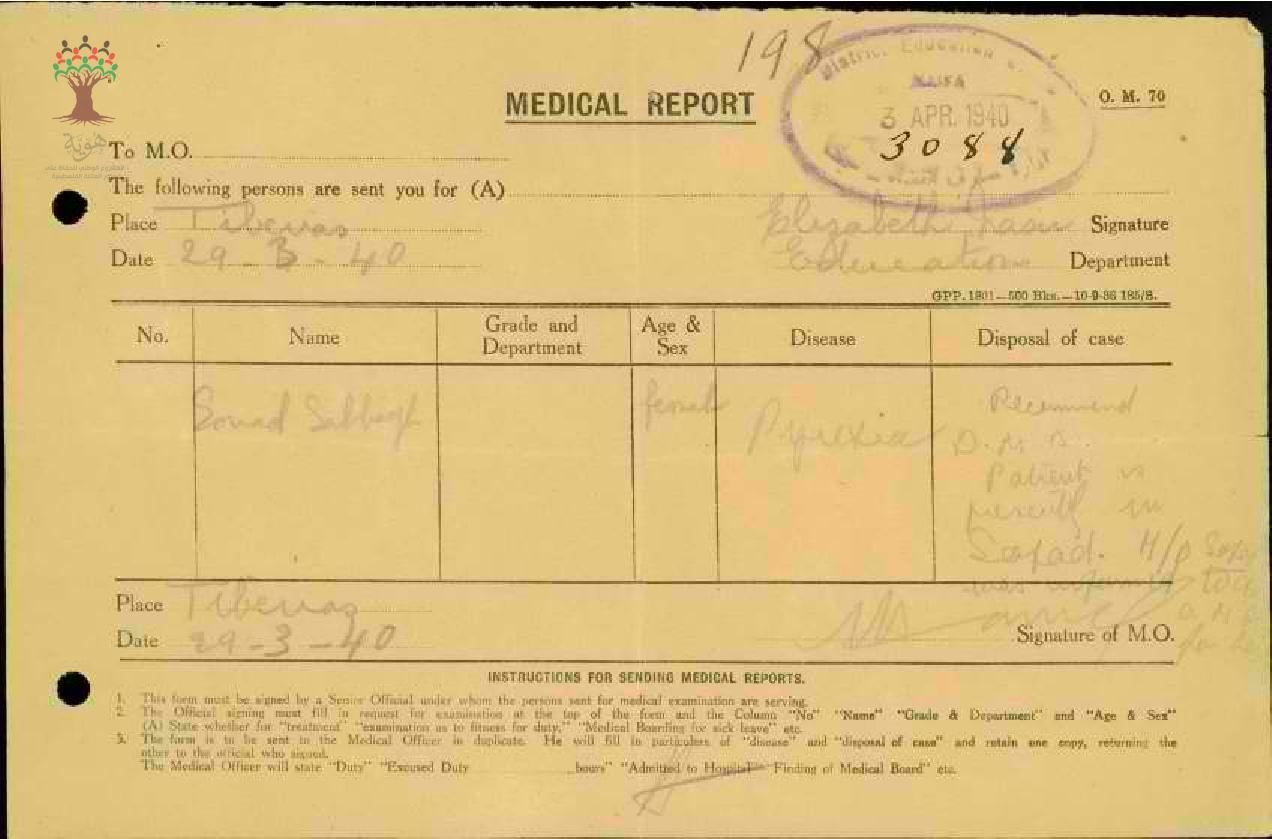 198
District Education
HAIFA
3 APR. 1940
3088
MEDICAL REPORT
O. M. 70
هوية
To M.O.
The following persons are sent you for (A)
Place Tiberias
Elizabeth Nasir Signature
Date 29-3-40
Education Department
GPP. 1801—500 Bks.—10-9-36 185/8.
No. Name Grade and Department Age & Sex Disease Disposal of case
Souad Sabbagh female Pyrexia
Recommend
D.M.B.
Patient is
presently in
Safad. H/O
was informed
Place Tiberias
Date 29-3-40
Signature of M.O.
INSTRUCTIONS FOR SENDING MEDICAL REPORTS.
1. This form must be signed by a Senior Official under whom the persons sent for medical examination are serving.
2. The Official signing must fill in request for examination at the top of the form and the Column "No" "Name" "Grade & Department" and "Age & Sex"
(A) State whether for "treatment" "examination as to fitness for duty," "Medical Boarding for sick leave" etc.
3. The form is to be sent to the Medical Officer in duplicate. He will fill in particulars of "disease" and "disposal of case" and retain one copy, returning the
other to the official who signed.
The Medical Officer will state "Duty" "Excused Duty hours" "Admitted to Hospital" "Finding of Medical Board" etc.